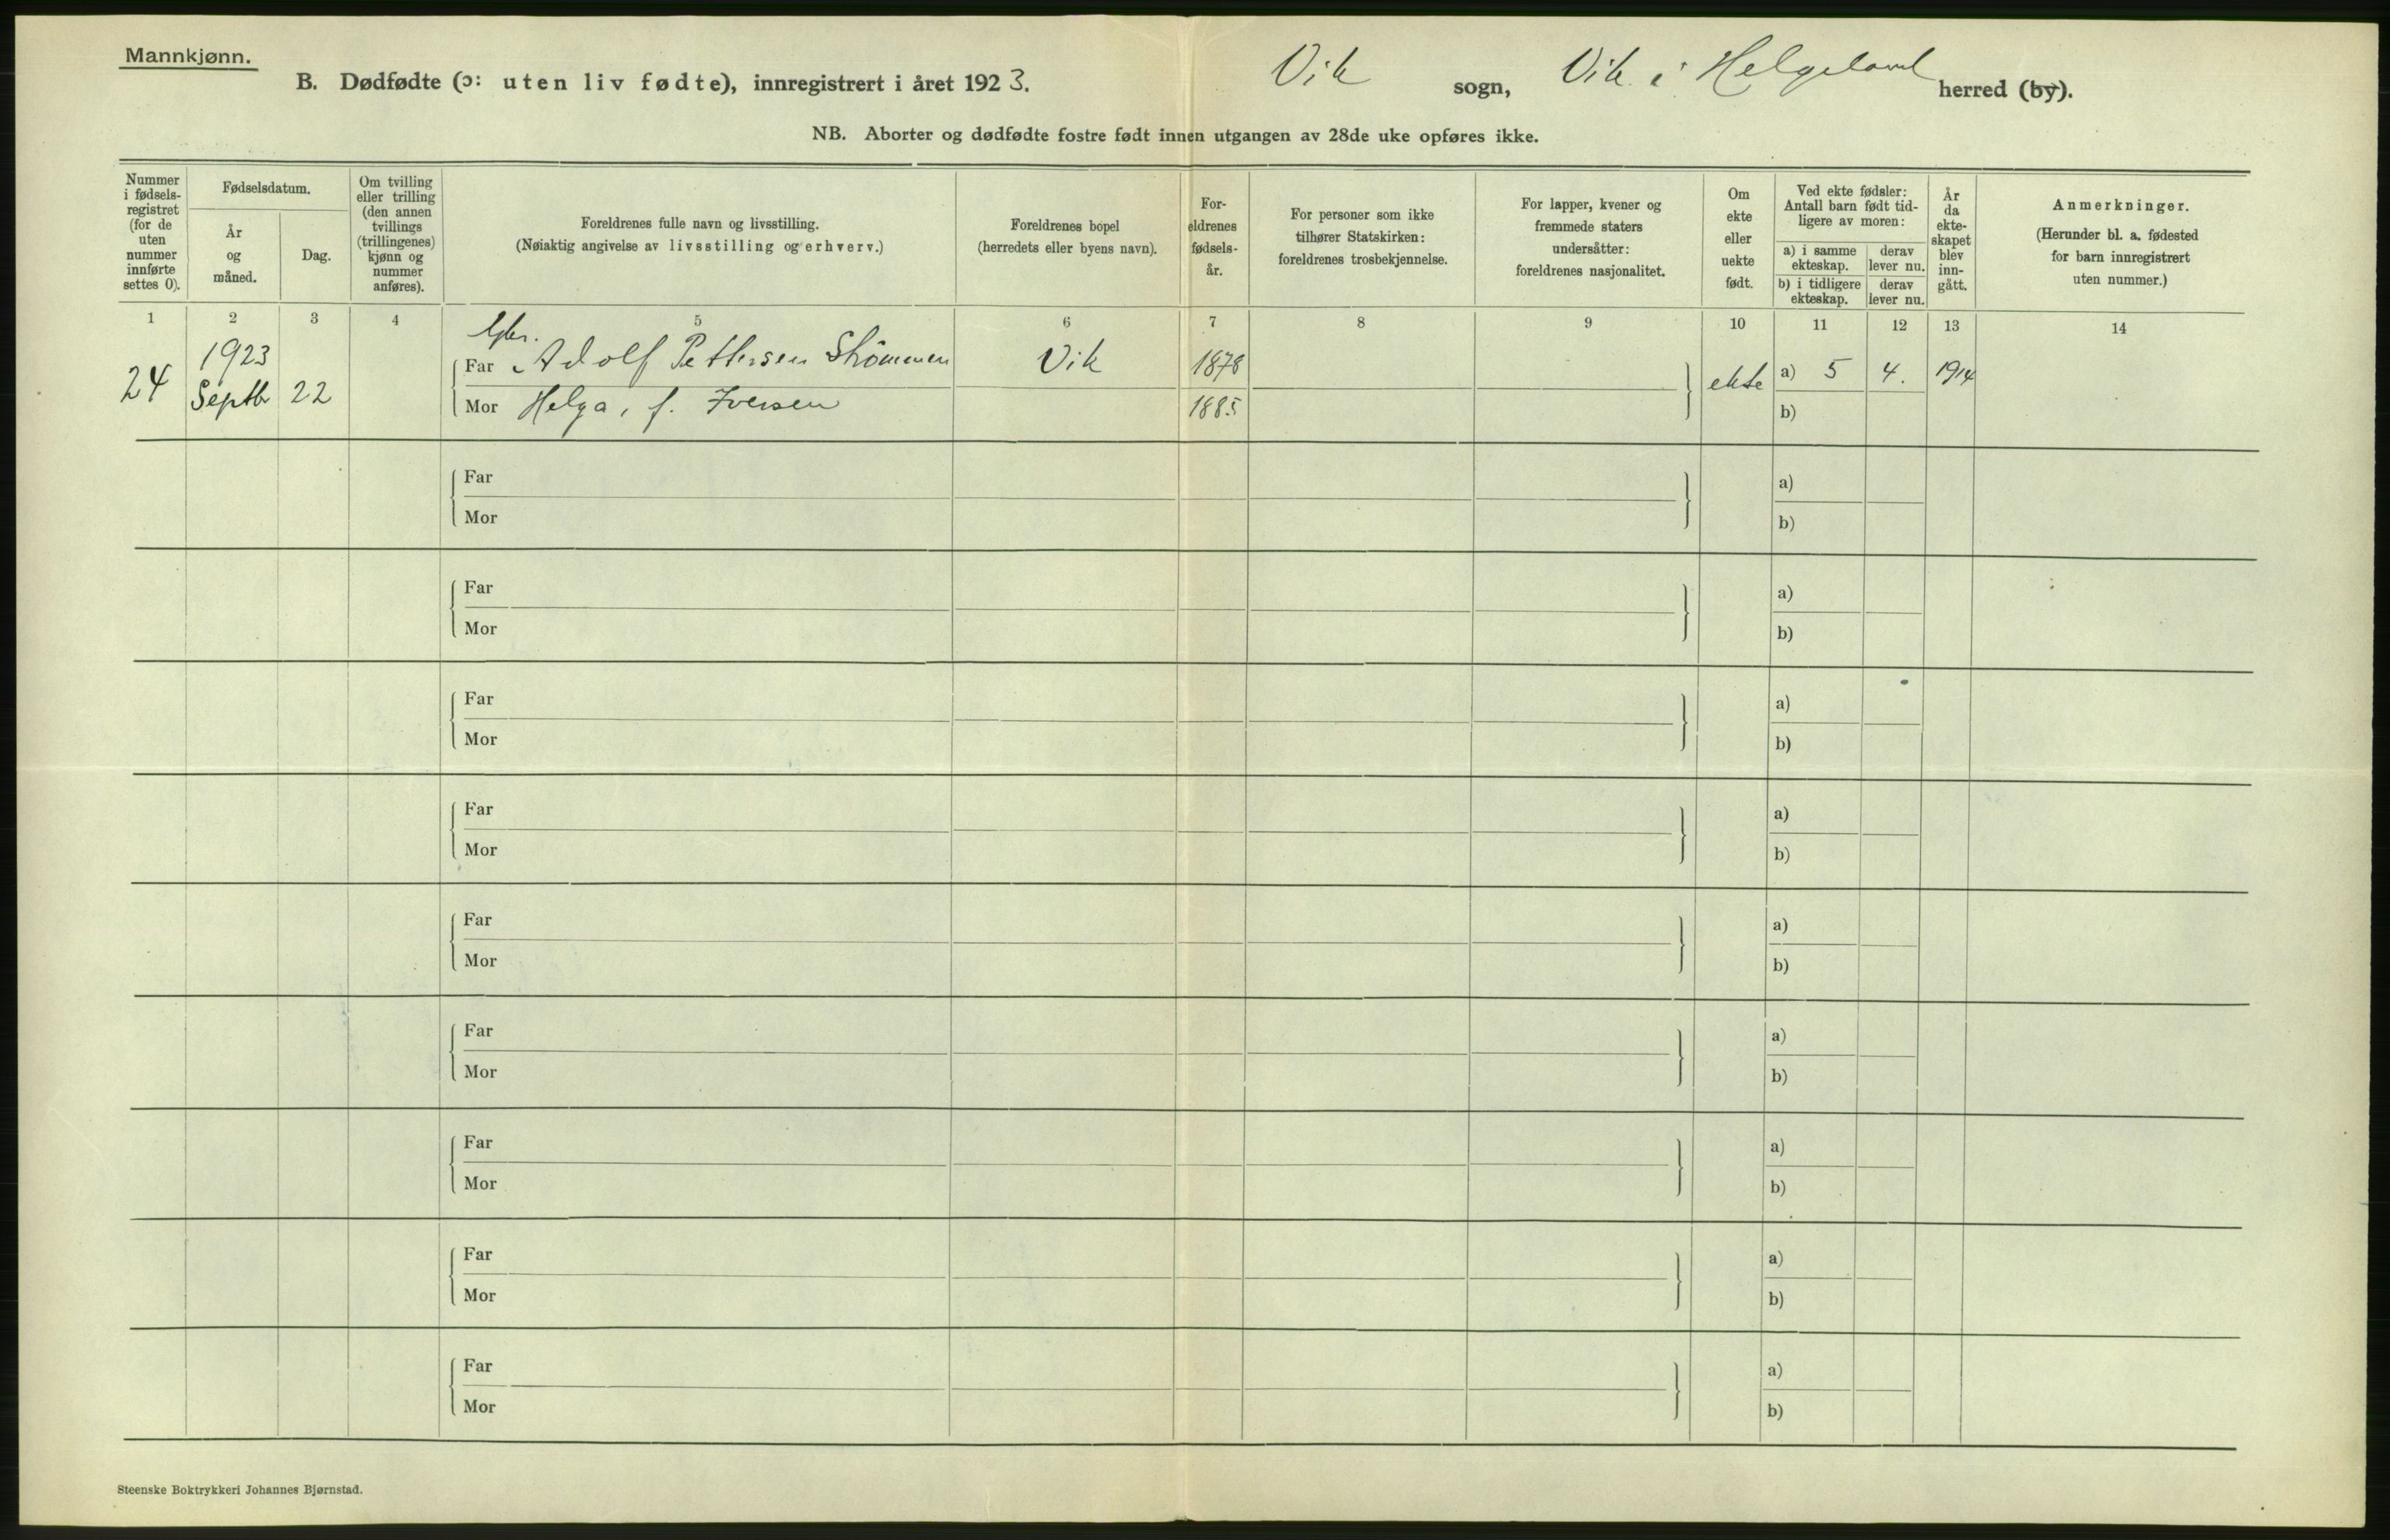 Mannkjønn.
B. Dødfødte (ɔ: uten liv fødte), innregistrert i året 1923. Vik sogn, Vik i Helgeland herred (by).
NB. Aborter og dødfødte fostre født innen utgangen av 28de uke opføres ikke.
Nummer i fødselsregistret (for de uten nummer innførte settes 0).
Fødselsdatum.
År og måned.
Dag.
Om tvilling eller trilling (den annen tvillings (trillingenes) kjønn og nummer anføres).
Foreldrenes fulle navn og livsstilling.
(Nøiaktig angivelse av livsstilling og erhverv.)
Foreldrenes bopel
(herredets eller byens navn).
Foreldrenes fødselsår.
For personer som ikke tilhører Statskirken: foreldrenes trosbekjennelse.
For lapper, kvener og fremmede staters undersåtter: foreldrenes nasjonalitet.
Om ekte eller uekte født.
Ved ekte fødsler: Antall barn født tidligere av moren:
a) i samme ekteskap. derav lever nu.
b) i tidligere ekteskap. derav lever nu.
År da ekteskapet blev inngått.
Anmerkninger.
(Herunder bl. a. fødested for barn innregistrert uten nummer.)
1 2 3 4 5 6 7 8 9 10 11 12 13 14
Gbr.
1923
Far Adolf Pettersen Strömmen Vik 1878
24 Septbr 22 ekte a) 5 4. 1914
Mor Helga, f. Iversen 1885 b)
Far a)
Mor b)
Far a)
Mor b)
Far a)
Mor b)
Far a)
Mor b)
Far a)
Mor b)
Far a)
Mor b)
Far a)
Mor b)
Far a)
Mor b)
Far a)
Mor b)
Steenske Boktrykkeri Johannes Bjørnstad.